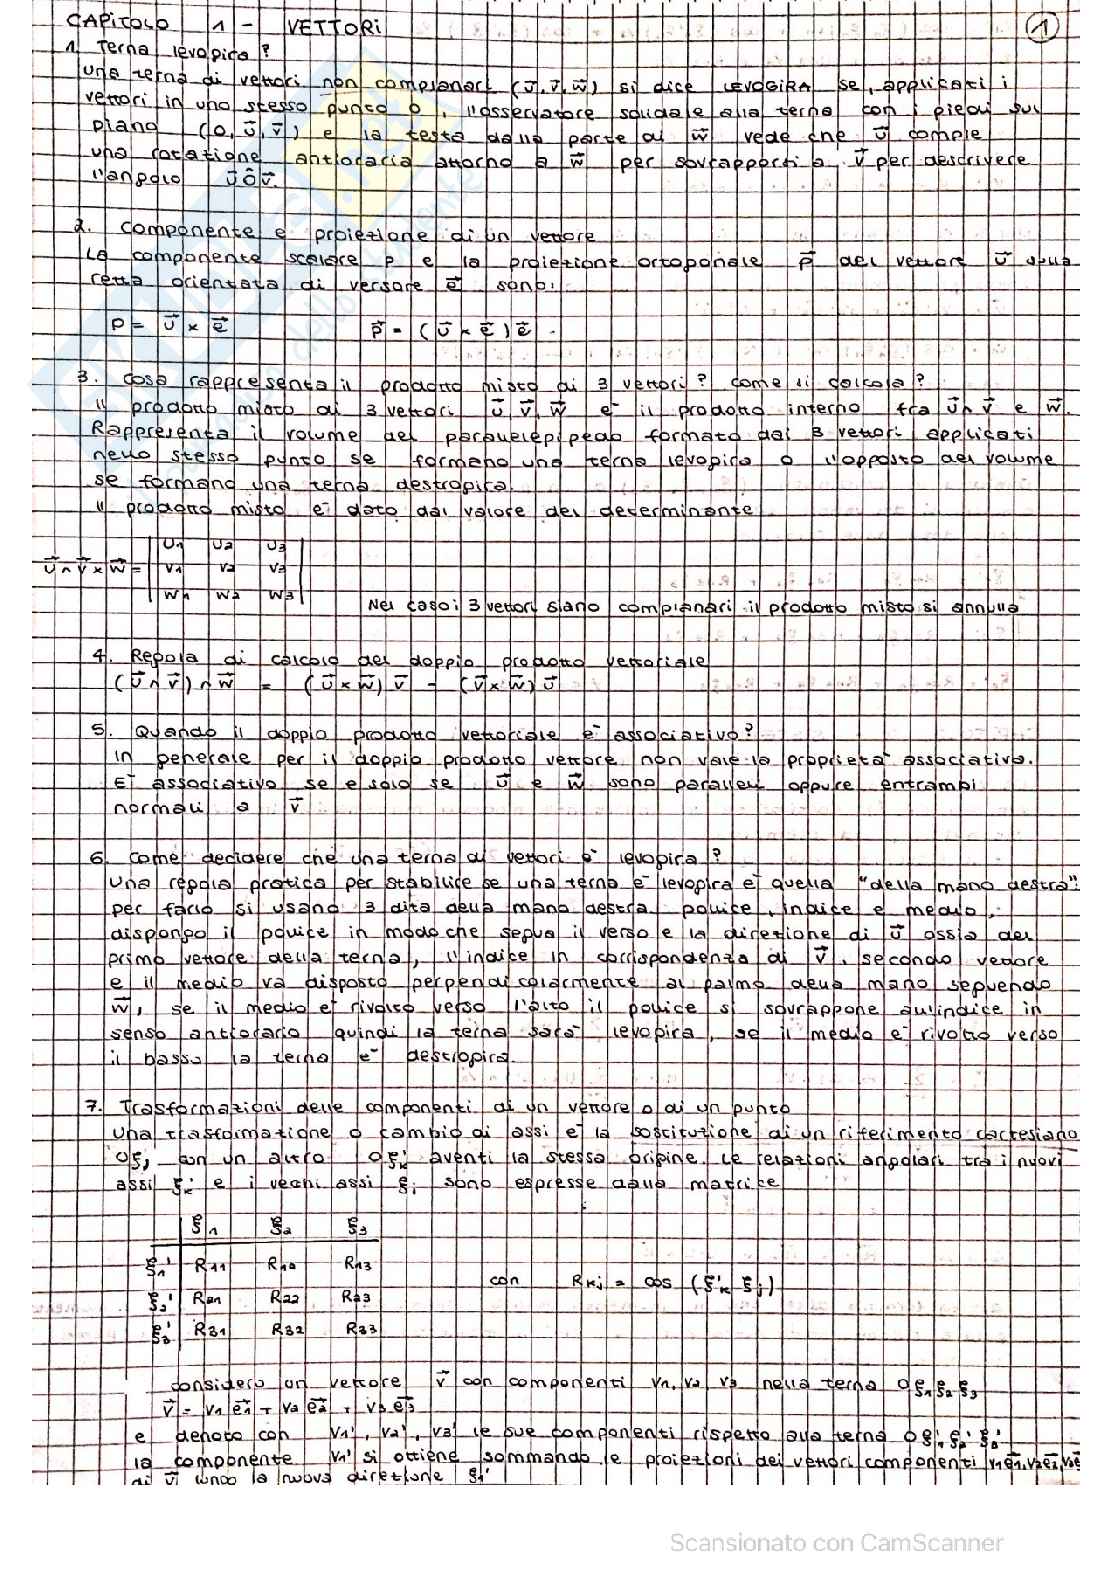 CAPITOLO 1 - VETTORI 1
1. Terna levogira?
una terna di vettori non complanari (u⃗, v⃗, w⃗) si dice LEVOGIRA se, applicati i
vettori in uno stesso punto O, l'osservatore solidale alla terna con i piedi sul
piano (O, u⃗, v⃗) e la testa dalla parte di w⃗ vede che u⃗ compie
una rotazione antioraria attorno a w⃗ per sovrapporsi a v⃗ per descrivere
l'angolo u⃗Ôv⃗.
2. componente e proiezione di un vettore
La componente scalare p e la proiezione ortogonale p⃗ del vettore u⃗ sulla
retta orientata di versore e⃗ sono:
p = u⃗ × e⃗ p⃗ = (u⃗ × e⃗) e⃗.
3. cosa rappresenta il prodotto misto di 3 vettori? come si calcola?
il prodotto misto di 3 vettori u⃗ v⃗, w⃗ è il prodotto interno fra u⃗∧v⃗ e w⃗.
Rappresenta il volume del parallelepipedo formato dai 3 vettori applicati
nello stesso punto se formano una terna levogira o l'opposto del volume
se formano una terna destrogira.
il prodotto misto è dato dal valore del determinante
u1 u2 u3
u⃗ ∧ v⃗ × w⃗ = v1 v2 v3
w1 w2 w3
Nel caso i 3 vettori siano complanari il prodotto misto si annulla
4. Regola di calcolo del doppio prodotto vettoriale
(u⃗ ∧ v⃗) ∧ w⃗ = (u⃗ × w⃗) v⃗ - (v⃗ × w⃗) u⃗
5. Quando il doppio prodotto vettoriale è associativo?
in generale per il doppio prodotto vettore non vale la proprietà associativa.
È associativo se e solo se u⃗ e w⃗ sono paralleli oppure entrambi
normali a v⃗
6. come decidere che una terna di vettori è levogira?
una regola pratica per stabilire se una terna è levogira è quella "della mano destra":
per farlo si usano 3 dita della mano destra pollice, indice e medio,
dispongo il pollice in modo che segua il verso e la direzione di u⃗ ossia del
primo vettore della terna, l'indice in corrispondenza di v⃗, secondo vettore
e il medio va disposto perpendicolarmente al palmo della mano seguendo
w⃗, se il medio è rivolto verso l'alto il pollice si sovrappone all'indice in
senso antiorario quindi la terna sarà levogira, se il medio è rivolto verso
il basso la terna è destrogira.
7. Trasformazioni delle componenti di un vettore o di un punto
una trasformazione o cambio di assi è la sostituzione di un riferimento cartesiano
Oξj con un altro Oξ'k aventi la stessa origine. Le relazioni angolari tra i nuovi
assi ξ'k e i vechi assi ξj sono espresse dalla matrice
ξ1 ξ2 ξ3
ξ1' R11 R12 R13
ξ2' R21 R22 R23
ξ3' R31 R32 R33
con Rkj = cos (ξ'k ξj)
considero un vettore v⃗ con componenti v1, v2, v3 nella terna Oξ1ξ2ξ3
v⃗ = v1 e⃗1 + v2 e⃗2 + v3 e⃗3
e denoto con v1', v2', v3' le sue componenti rispetto alla terna Oξ1'ξ2'ξ3'
la componente v1' si ottiene sommando le proiezioni dei vettori componenti v1e⃗1, v2e⃗2, v3e⃗
di v⃗ lungo la nuova direzione ξ1'
Scansionato con CamScanner